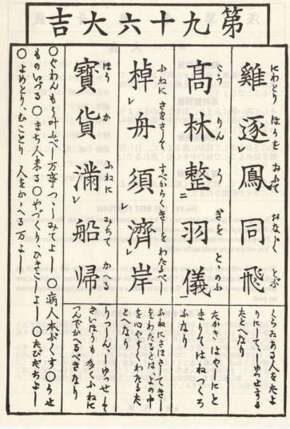 第九十六大吉
雞逐鳳同飛
にわとり ほうを おふて おなじく とぶ
くらゐある人をたよ
りにして、りつせする
たとへなり
髙林整羽儀
こう りん う ぎを とゝのふ
たかきはやしにと
まりてはねつくろ
ふなり
棹舟須濟岸
ふねに さをさして すべからく きしを わたるべし
ふねにさほさしてきし
をわたるとは、よの中
を心やすくわたるた
とへなり
寶貨滿船帰
ほう か ふねに みちて かへる
りつしん、りつせして
さいはひも多くふねに
つんでかへるべきなり
○ぐわんもう叶ふべし万事つゝしみてよし ○病人本ぶくす○うせ
ものいづる○まち人来る○やづくり、ひきこしよし○たびだちよし
○よめとり、むことり 人をかゝへる万よし